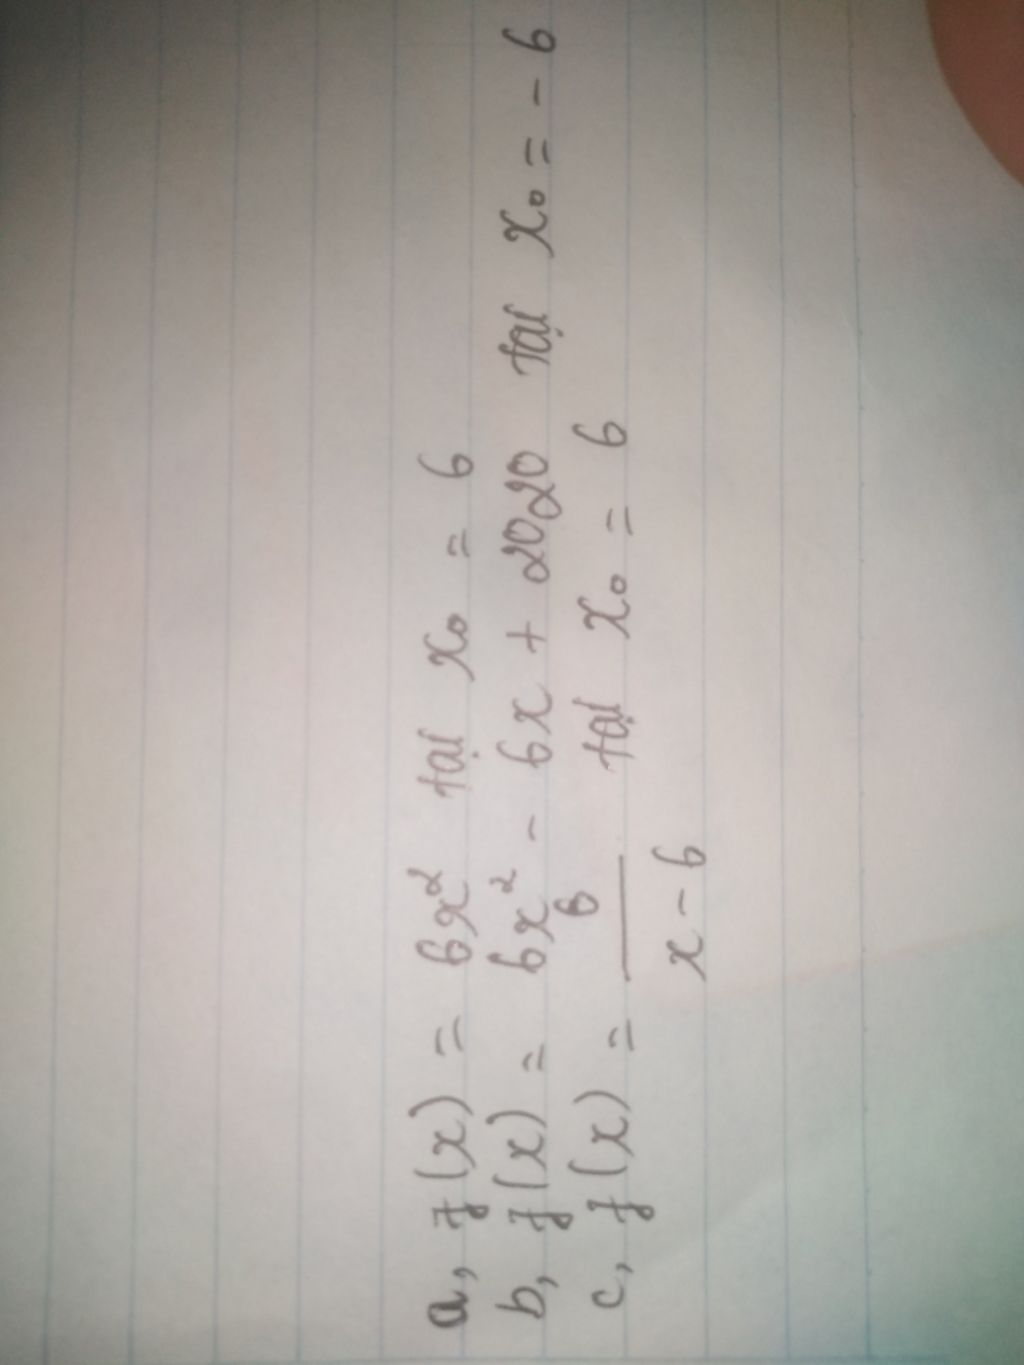 a, f(x) = 6x² tại x₀ = 6
b, f(x) = 6x² - 6x + 2020 tại x₀ = - 6
c, f(x) = 6/(x - 6) tại x₀ = 6